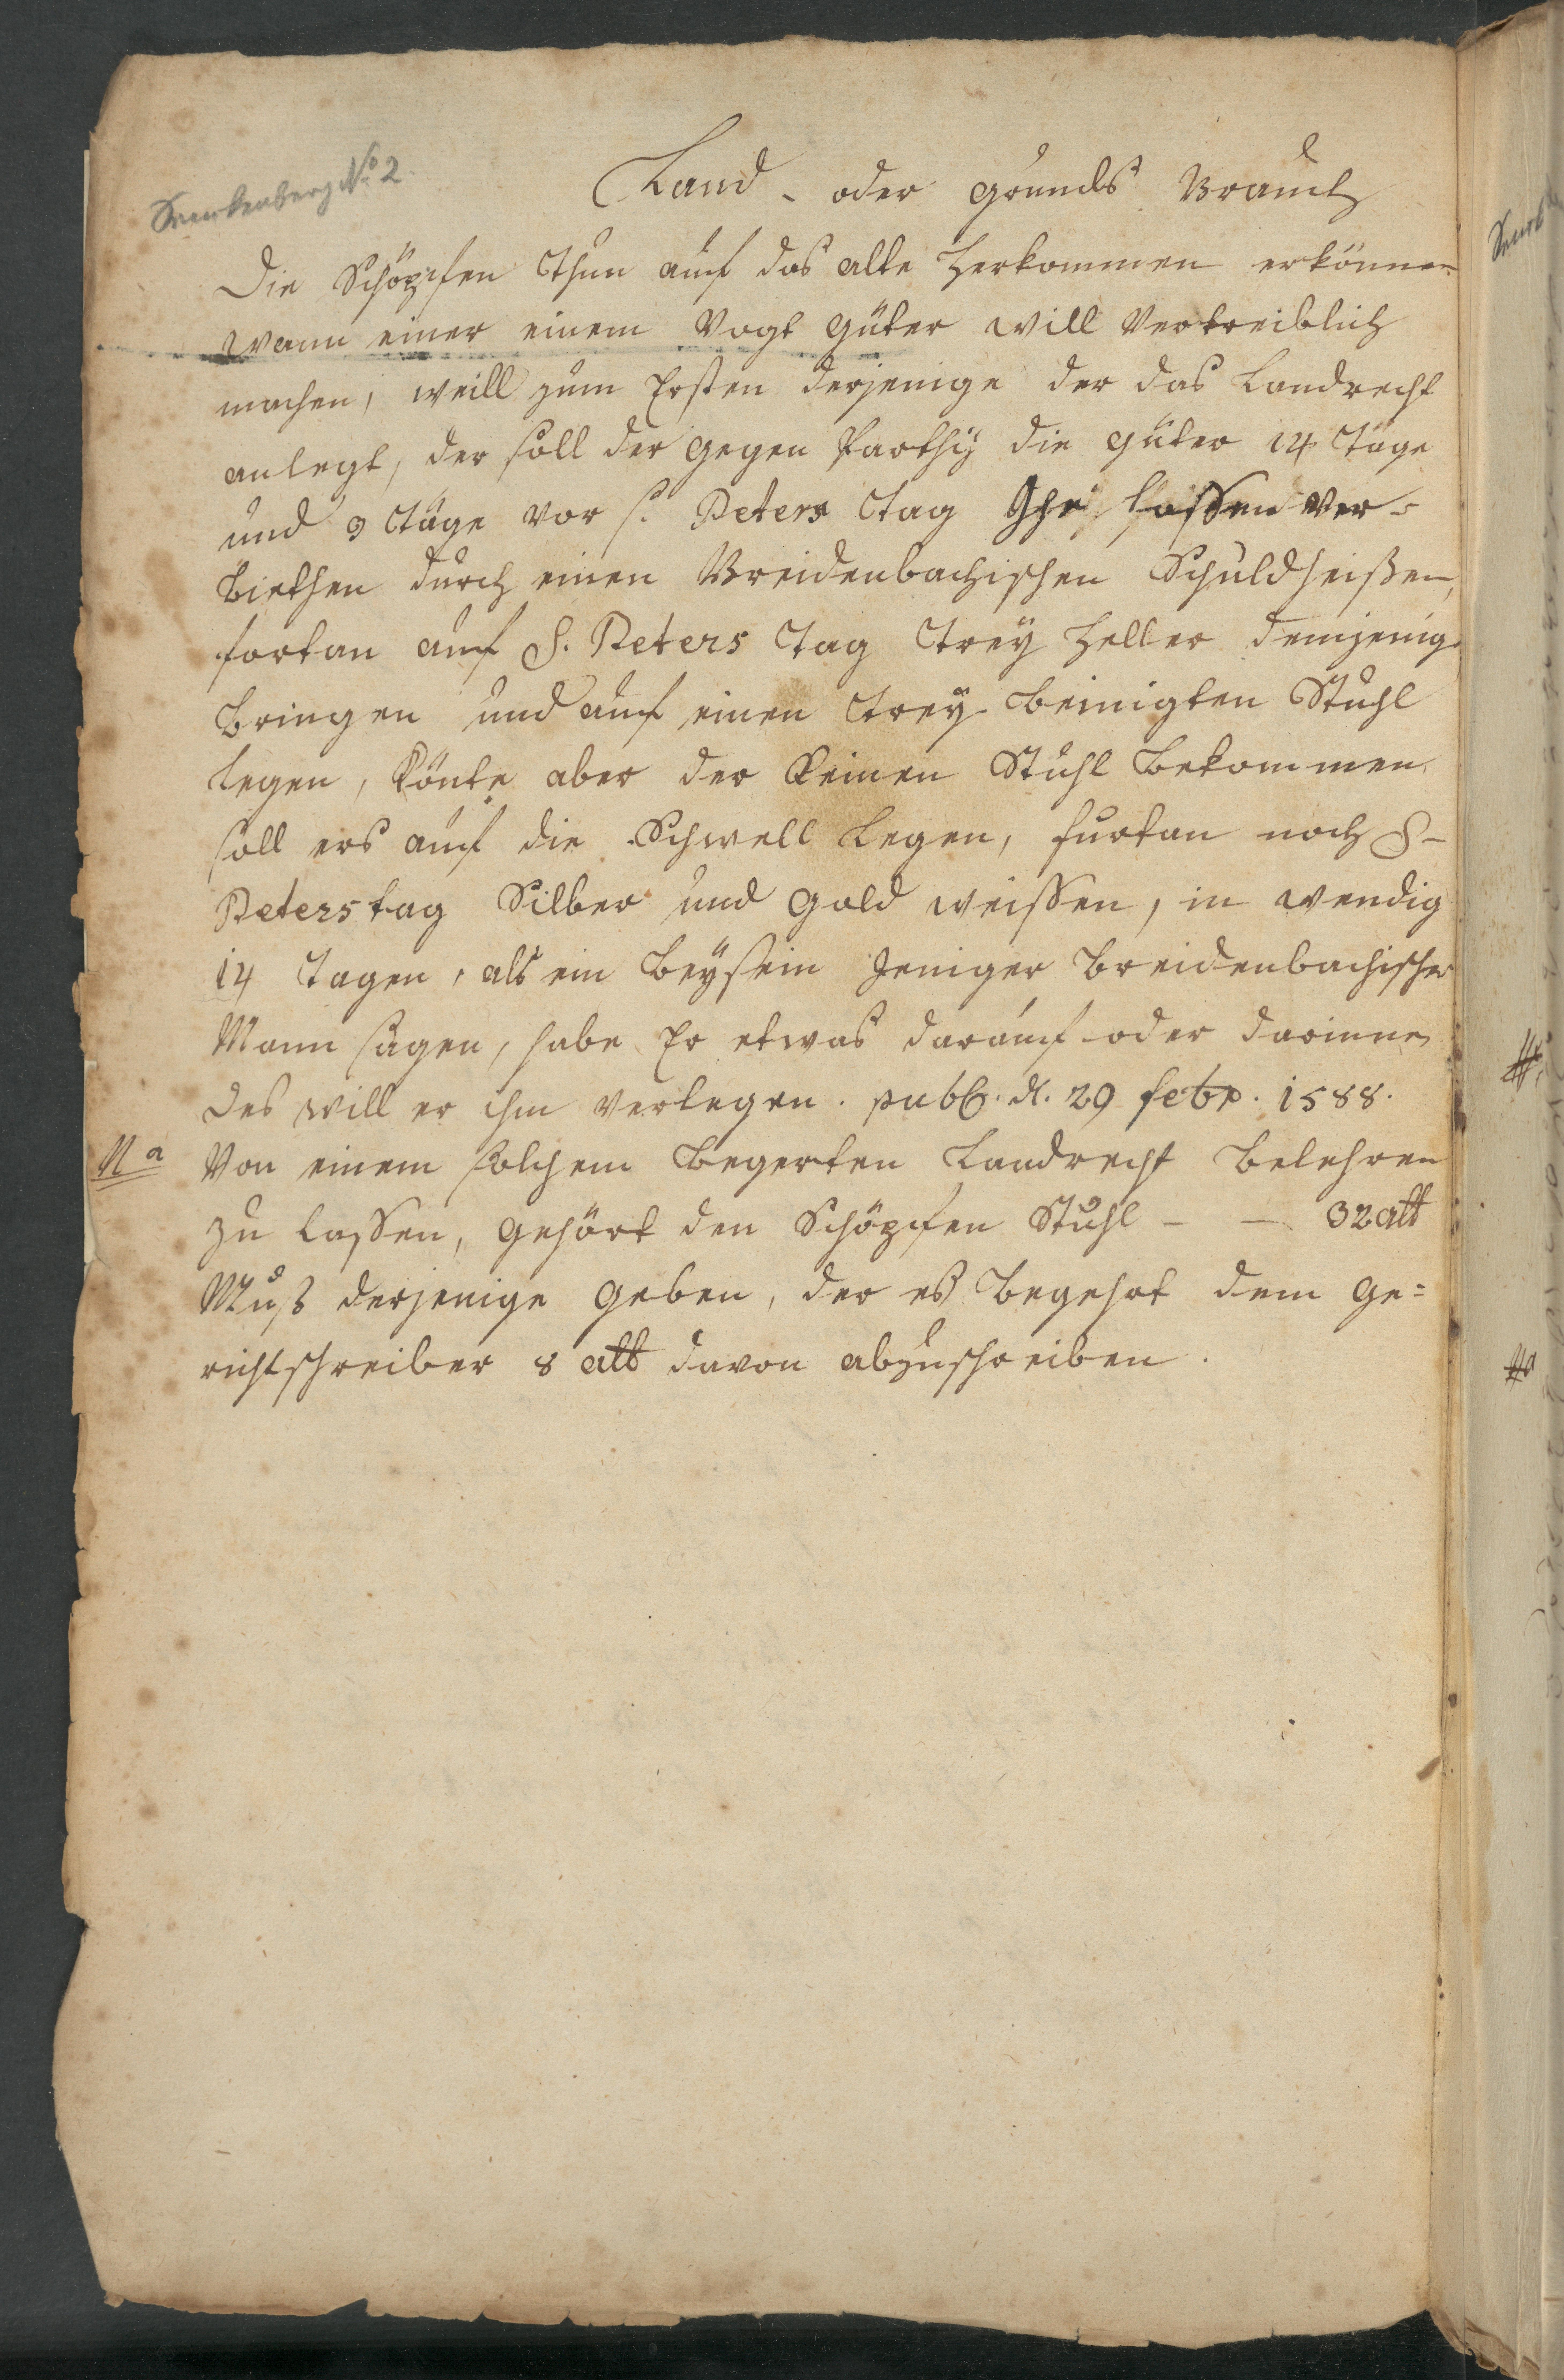 Frankenberg No 2.
Land- oder grunds Brauch
Die Schöpfen Thun auf das alte herkommen erkönnen
wann einer einem Vogt güter will Vertreiblich
machen, weill zum Ersten derjenige der das Landrecht
anlegt, der soll der gegen Parthij die güter 14 Täge
und 3 Täge vor s. Peters Tag lassen ver-
biethen durch einen Breidenbachischen Schuldheißen,
fortan auf S. Peters Tag Trey heller demjenig
bringen und auf einen Trey beinigten Stuhl
legen, könte aber der keinen Stuhl bekommen
soll ers auf die Schwell legen, furtan noch S-
Peters tag Silber und gold weissen, in wendig
14 Tagen, als ein beysein Jeniger breidenbachischer
Mann sagen, habe Er etwas darauf oder darinnen
des will er ihm verlegen. publ. d. 29 febr. 1588.
Na Von einem solchem begerten Landrecht belehren
zu lassen, gehört den Schöpfen Stuhl - - 32 alb
Muß derjenige geben, der es begehrt dem ge=
richtschreiber 8 alb davon abzuschreiben.